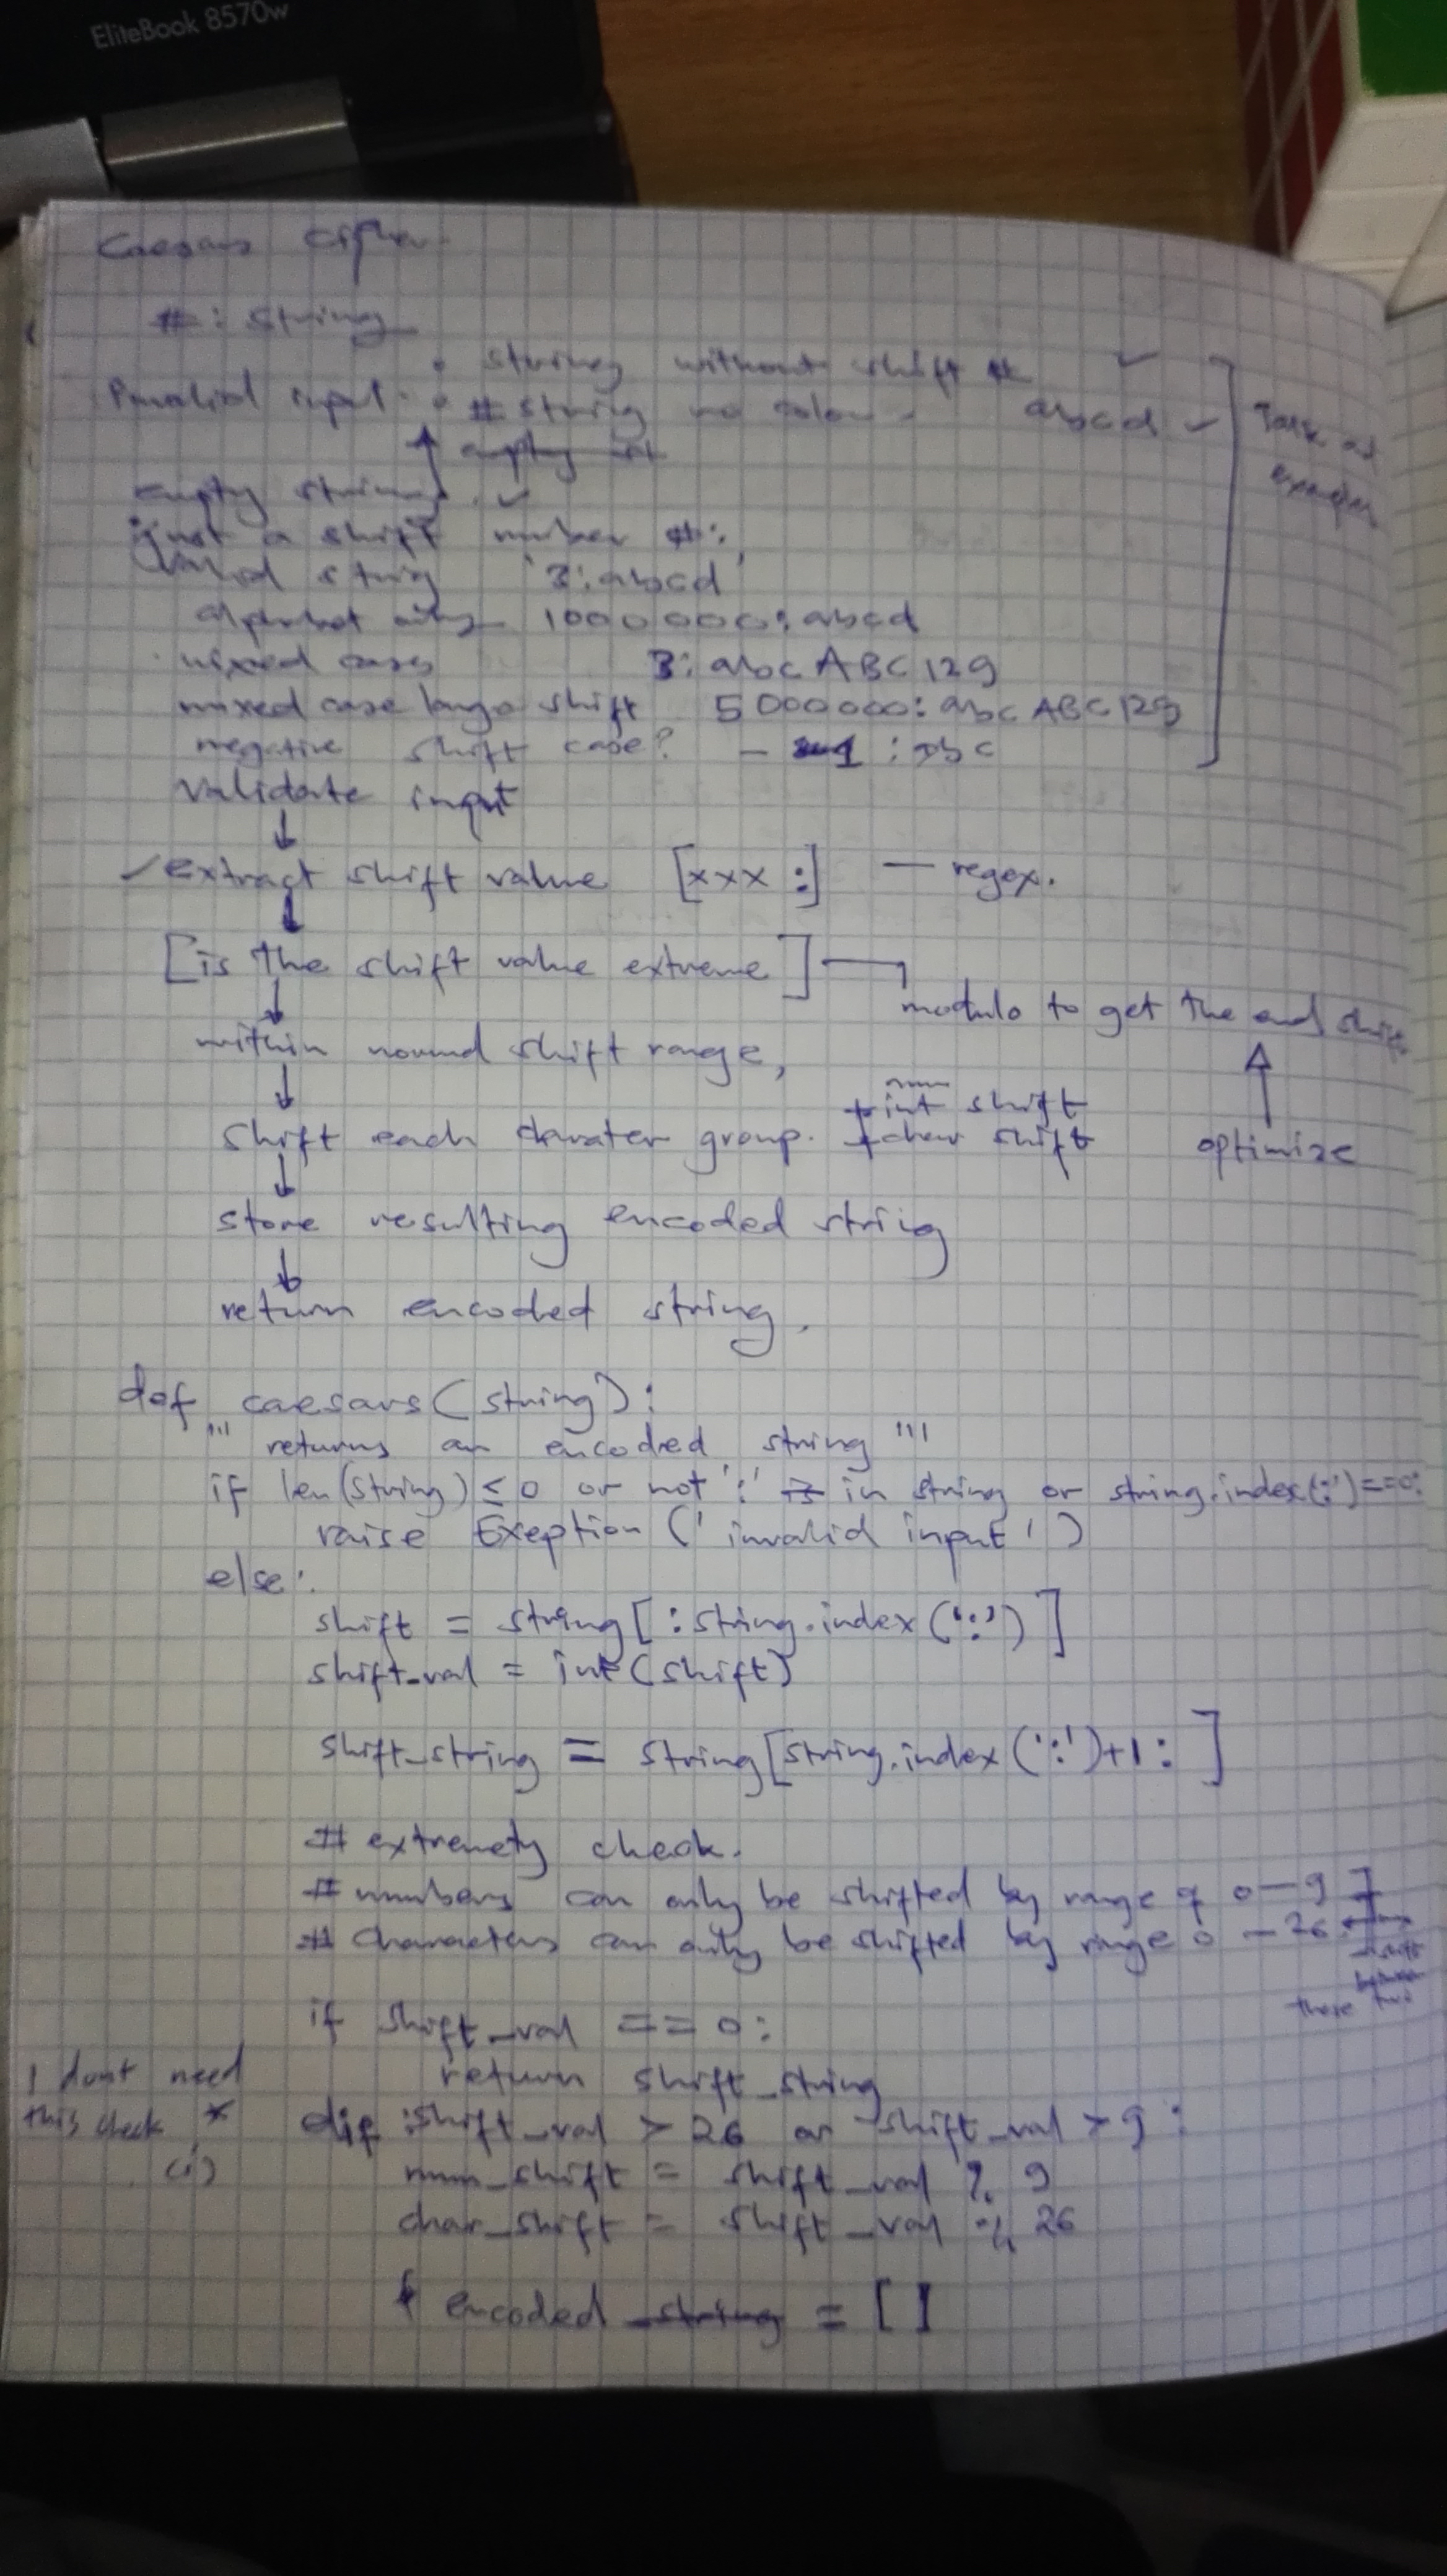 EliteBook 8570w
Caesars cipher
#: string
Invalid input : • string without shift #
• # string no colon . abcd
empty
empty string
just a shift number #:
Valid string '3:abcd'
alphabet only 1000000:abcd
mixed cases 3: abcABC129
mixed case large shift 5000000: abcABC129
negative shift case? - 1 : abc
Task as
examples
Validate input
extract shift value [xxx:] — regex.
[is the shift value extreme]
modulo to get the end shift
within normal shift range,
int shift
shift each character group. char shift
optimize
store resulting encoded string
return encoded string.
def caesars(string):
''' returns an encoded string '''
if len(string) ≤ 0 or not ':' in string or string.index(':')==0:
raise Exeption ('invalid input')
else:
shift = string[:string.index(':')]
shift_val = int(shift)
shift_string = string[string.index(':')+1:]
# extremety check.
# numbers can only be shifted by range of 0—9
# characters can only be shifted by range 0 — 26
these two
if shift_val == 0:
return shift_string
I dont need
this check *
(i)
elif shift_val > 26 or shift_val > 9:
num_shift = shift_val % 9
char_shift = shift_val % 26
encoded_string = []